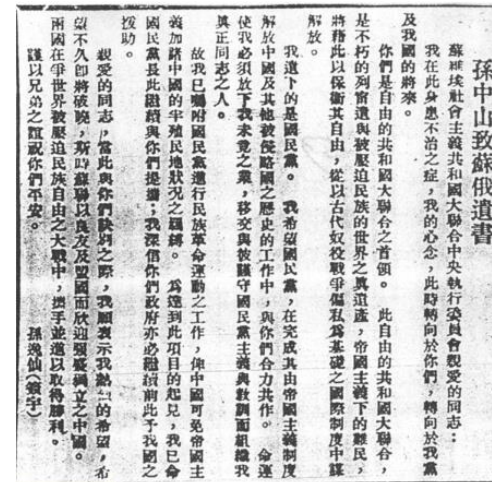 孫中山致蘇俄遺書
蘇維埃社會主義共和國大聯合中央執行委員會親愛的同志：
我在此身患不治之症，我的心念，此時轉向於你們，轉向於我黨
及我國的將來。
你們是自由的共和國大聯合之首領。　此自由的共和國大聯合，
是不朽的列甯遺與被壓迫民族的世界之眞遺產，帝國主義下的難民，
將藉此以保衞其自由，從以古代奴役戰爭偏私爲基礎之國際制度中謀
解放。
我遺下的是國民黨。　我希望國民黨，在完成其由帝國主義制度
解放中國及其他被侵略國之歷史的工作中，與你們合力共作。　命運
使我必須放下我未竟之業，移交與彼謹守國民黨主義與敎訓而組織我
眞正同志之人。
故我已囑咐國民黨進行民族革命運動之工作，俾中國可免帝國主
義加諸中國的半殖民地狀況之羈縛。　爲達到此項目的起見，我已命
國民黨長此繼續與你們提攜；我深信你們政府亦必繼續前此予我國之
援助。
親愛的同志，當此與你們訣別之際，我願表示我熱烈的希望，希
望不久卽將破曉，斯時蘇聯以良友及盟國而欣迎强盛獨立之中國。
兩國在爭世界被壓迫民族自由之大戰中，攜手並進以取得勝利。
謹以兄弟之誼祝你們平安。
孫逸仙（簽字）